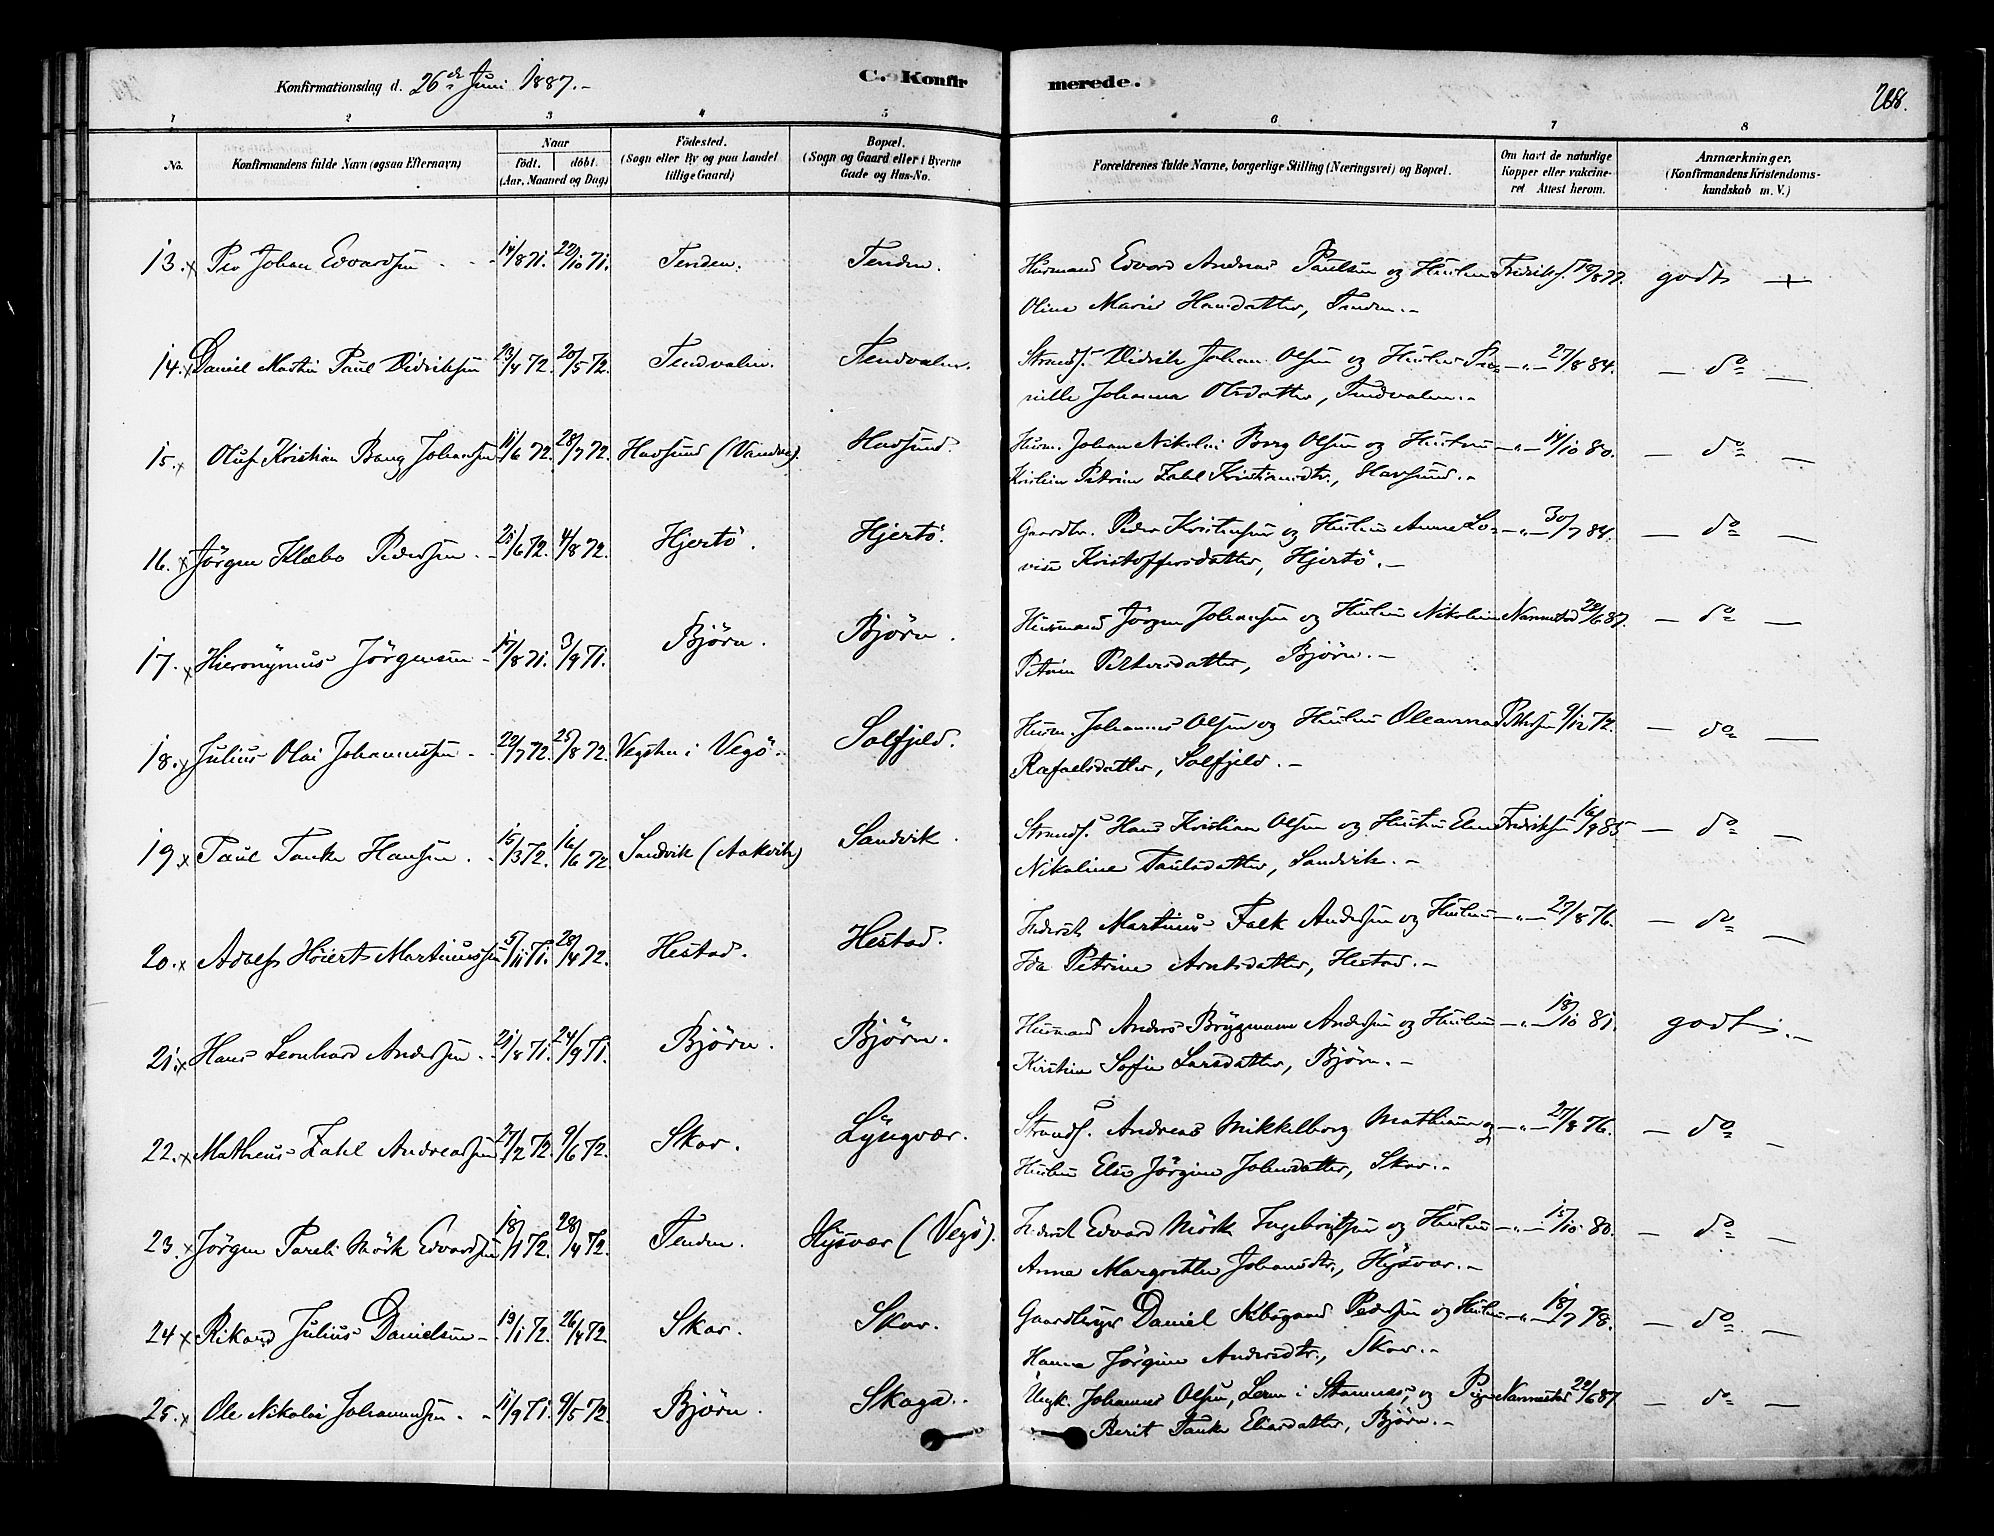 Konfirmationsdag d. 26de Juni 1887.-
C. Konfirmerede.
268.
1 2 3 4 5 6 7 8
No. Konfirmandens fulde Navn (ogsaa Efternavn) Naar födt. döbt. (Aar, Maaned og Dag) Födested. (Sogn eller By og paa Landet tillige Gaard) Bopæl. (Sogn og Gaard eller i Byerne Gade og Hus-No. Forældrenes fulde Navne, borgerlige Stilling (Næringsvei) og Bopæl. Om havt de naturlige Kopper eller vakcineret Attest herom. Anmærkninger. (Konfirmandens Kristendomskundskab m. V.)
13. x Peo Johan Edvardsen 14/8 71. 22/10 71. Tenden. Tenden. Husmand Edvard Andreas Paulsen og Hustru Fredriks. 19/8 77. godt +
Oline Marie Hansdatter, Tenden.-
14. x Daniel Martin Paul Didriksen 23/4 72. 20/5 72. Tendvalen. Tendvalen. Strands. Didrik Johan Olsen og Hustru Per- -"- 27/8 84. - do -
nille Johanna Olsdatter, Tendvalen.-
15. x Oluf Kristian Bang Johansen 11/6 72. 28/7 72. Havsund (Vandve). Havsund. Husm. Johan Nikolai Borg Olsen og Hustru -"- 14/10 80. - do -
Kristine Petrine Zahl Kristiansdtr., Havsund.-
16. x Jörgen Klæbo Pedersen 25/6 72. 4/8 72. Hjertö. Hjertö. Gaardbr. Peder Kristensen og Hustru Anne Lo- -"- 30/7 84. - do -
vise Kristoffersdatter, Hjertö.-
17. x Hieronymus Jörgensen 17/8 71. 3/9 71. Björn. Björn. Husmand Jörgen Johansen og Hustru Nikoline Nannestad 20/6 87. - do -
Petrine Pettersdatter, Björn.-
18. x Julius Olai Johannessen 22/7 72. 25/8 72. Vegsten i Vegö. Solfjeld. Husm. Johannes Olsen og Hustru Oleanna Petersen 9/12 72. - do -
Rafaelsdatter, Solfjeld.-
19. x Paul Tanke Hansen 15/3 72. 16/6 72 Sandvik (Aakvik) Sandvik. Strands. Hans Kristian Olsen og Hustru Elen Fredriksen 16/9 85. - do -
Nikoline Paulsdatter, Sandvik.-
20. x Adolf Höiert Martinussen 5/11 71. 28/4 72. Hestad. Hestad. Inderst Martinus Falk Andersen og Hustru -"- 27/8 76. - do -
Ida Petrine Arntsdatter, Hestad.-
21. x Hans Leonhard Andersen 21/8 71. 24/9 71. Björn. Björn. Husmand Anders Bryggmann Andersen og Hustru -"- 18/10 81. godt.-
Kirstine Sofie Larsdatter, Björn.-
22. x Matheus Zahl Andreassen 27/2 72. 9/6 72. Skar. Lyngvær. Strands. Andreas Mikkelborg Mathisen og -"- 27/8 76. - do -
Hustru Else Jörgine Johnsdatter, Skar.-
23. x Jörgen Pareli Mörk Edvardsen 18/1 72. 28/4 72. Tenden. Hysvær (Vegö). Inderst Edvard Mörk Ingebrigtsen og Hustru -"- 15/10 80. - do -
Anna Margrethe Johansdtr., Hysvær.-
24 x Rikard Julius Danielsen 19/1 72. 26/4 72 Skar. Skar. Gaardbruger Daniel Pedersen og Hustru -"- 18/7 78. - do -
Hanna Jörgine Andersdtr., Skar.-
25. x Ole Nikolai Johannessen 11/9 71. 9/5 72. Björn. Skaga. Ungk. Johannes Olsen, Leen i Stamnes, og Pige Nannestad 20/6 87. - do -
Berit Tanke Eliasdatter, Björn.-